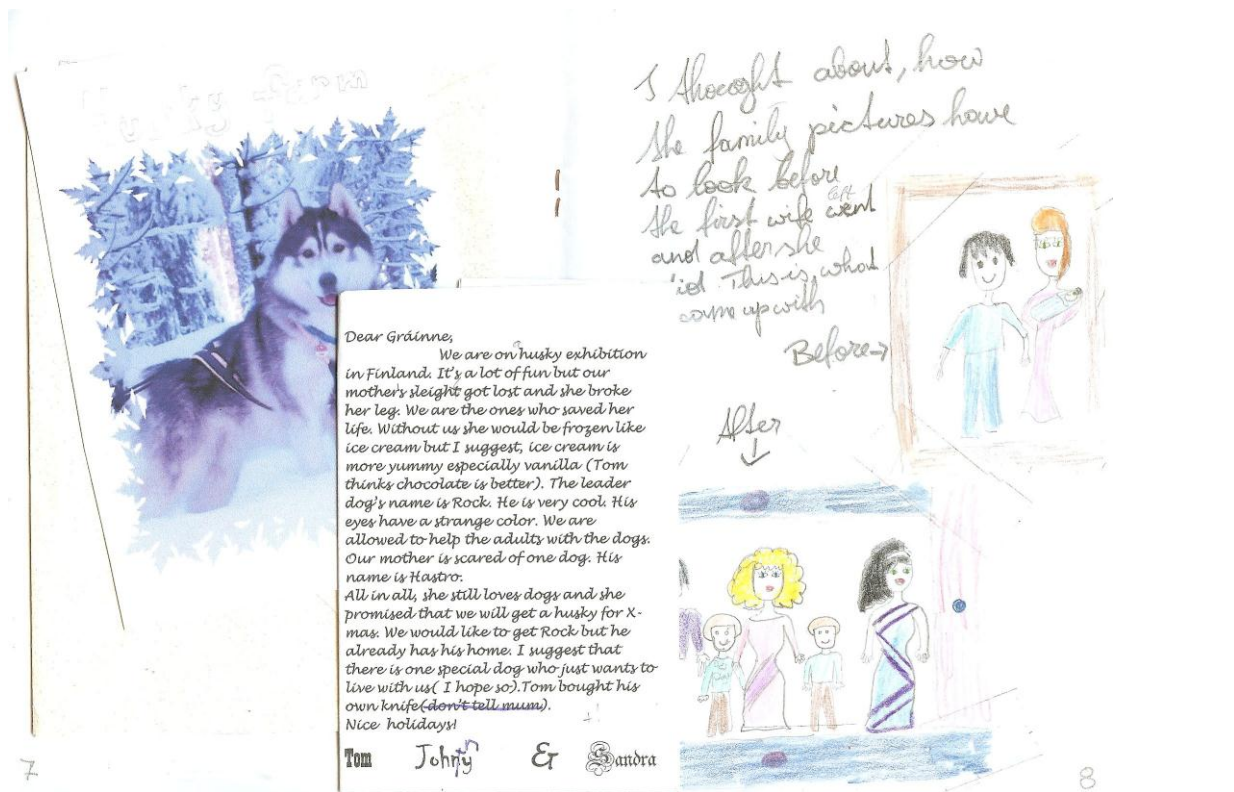 Husky farm
Dear Gráinne,
We are on husky exhibition
in Finland. It's a lot of fun but our
mother's sleight got lost and she broke
her leg. We are the ones who saved her
life. Without us she would be frozen like
ice cream but I suggest, ice cream is
more yummy especially vanilla (Tom
thinks chocolate is better). The leader
dog's name is Rock. He is very cool. His
eyes have a strange color. We are
allowed to help the adults with the dogs.
Our mother is scared of one dog. His
name is Hastro.
All in all, she still loves dogs and she
promised that we will get a husky for X-
mas. We would like to get Rock but he
already has his home. I suggest that
there is one special dog who just wants to
live with us( I hope so).Tom bought his
own knife(don't tell mum).
Nice holidays!
Tom Johny & Sandra
7
I thought about, how
the family pictures have
to look before
left
the first wife went
and after she
id. This is, what
came up with
Before→
After
↓
8